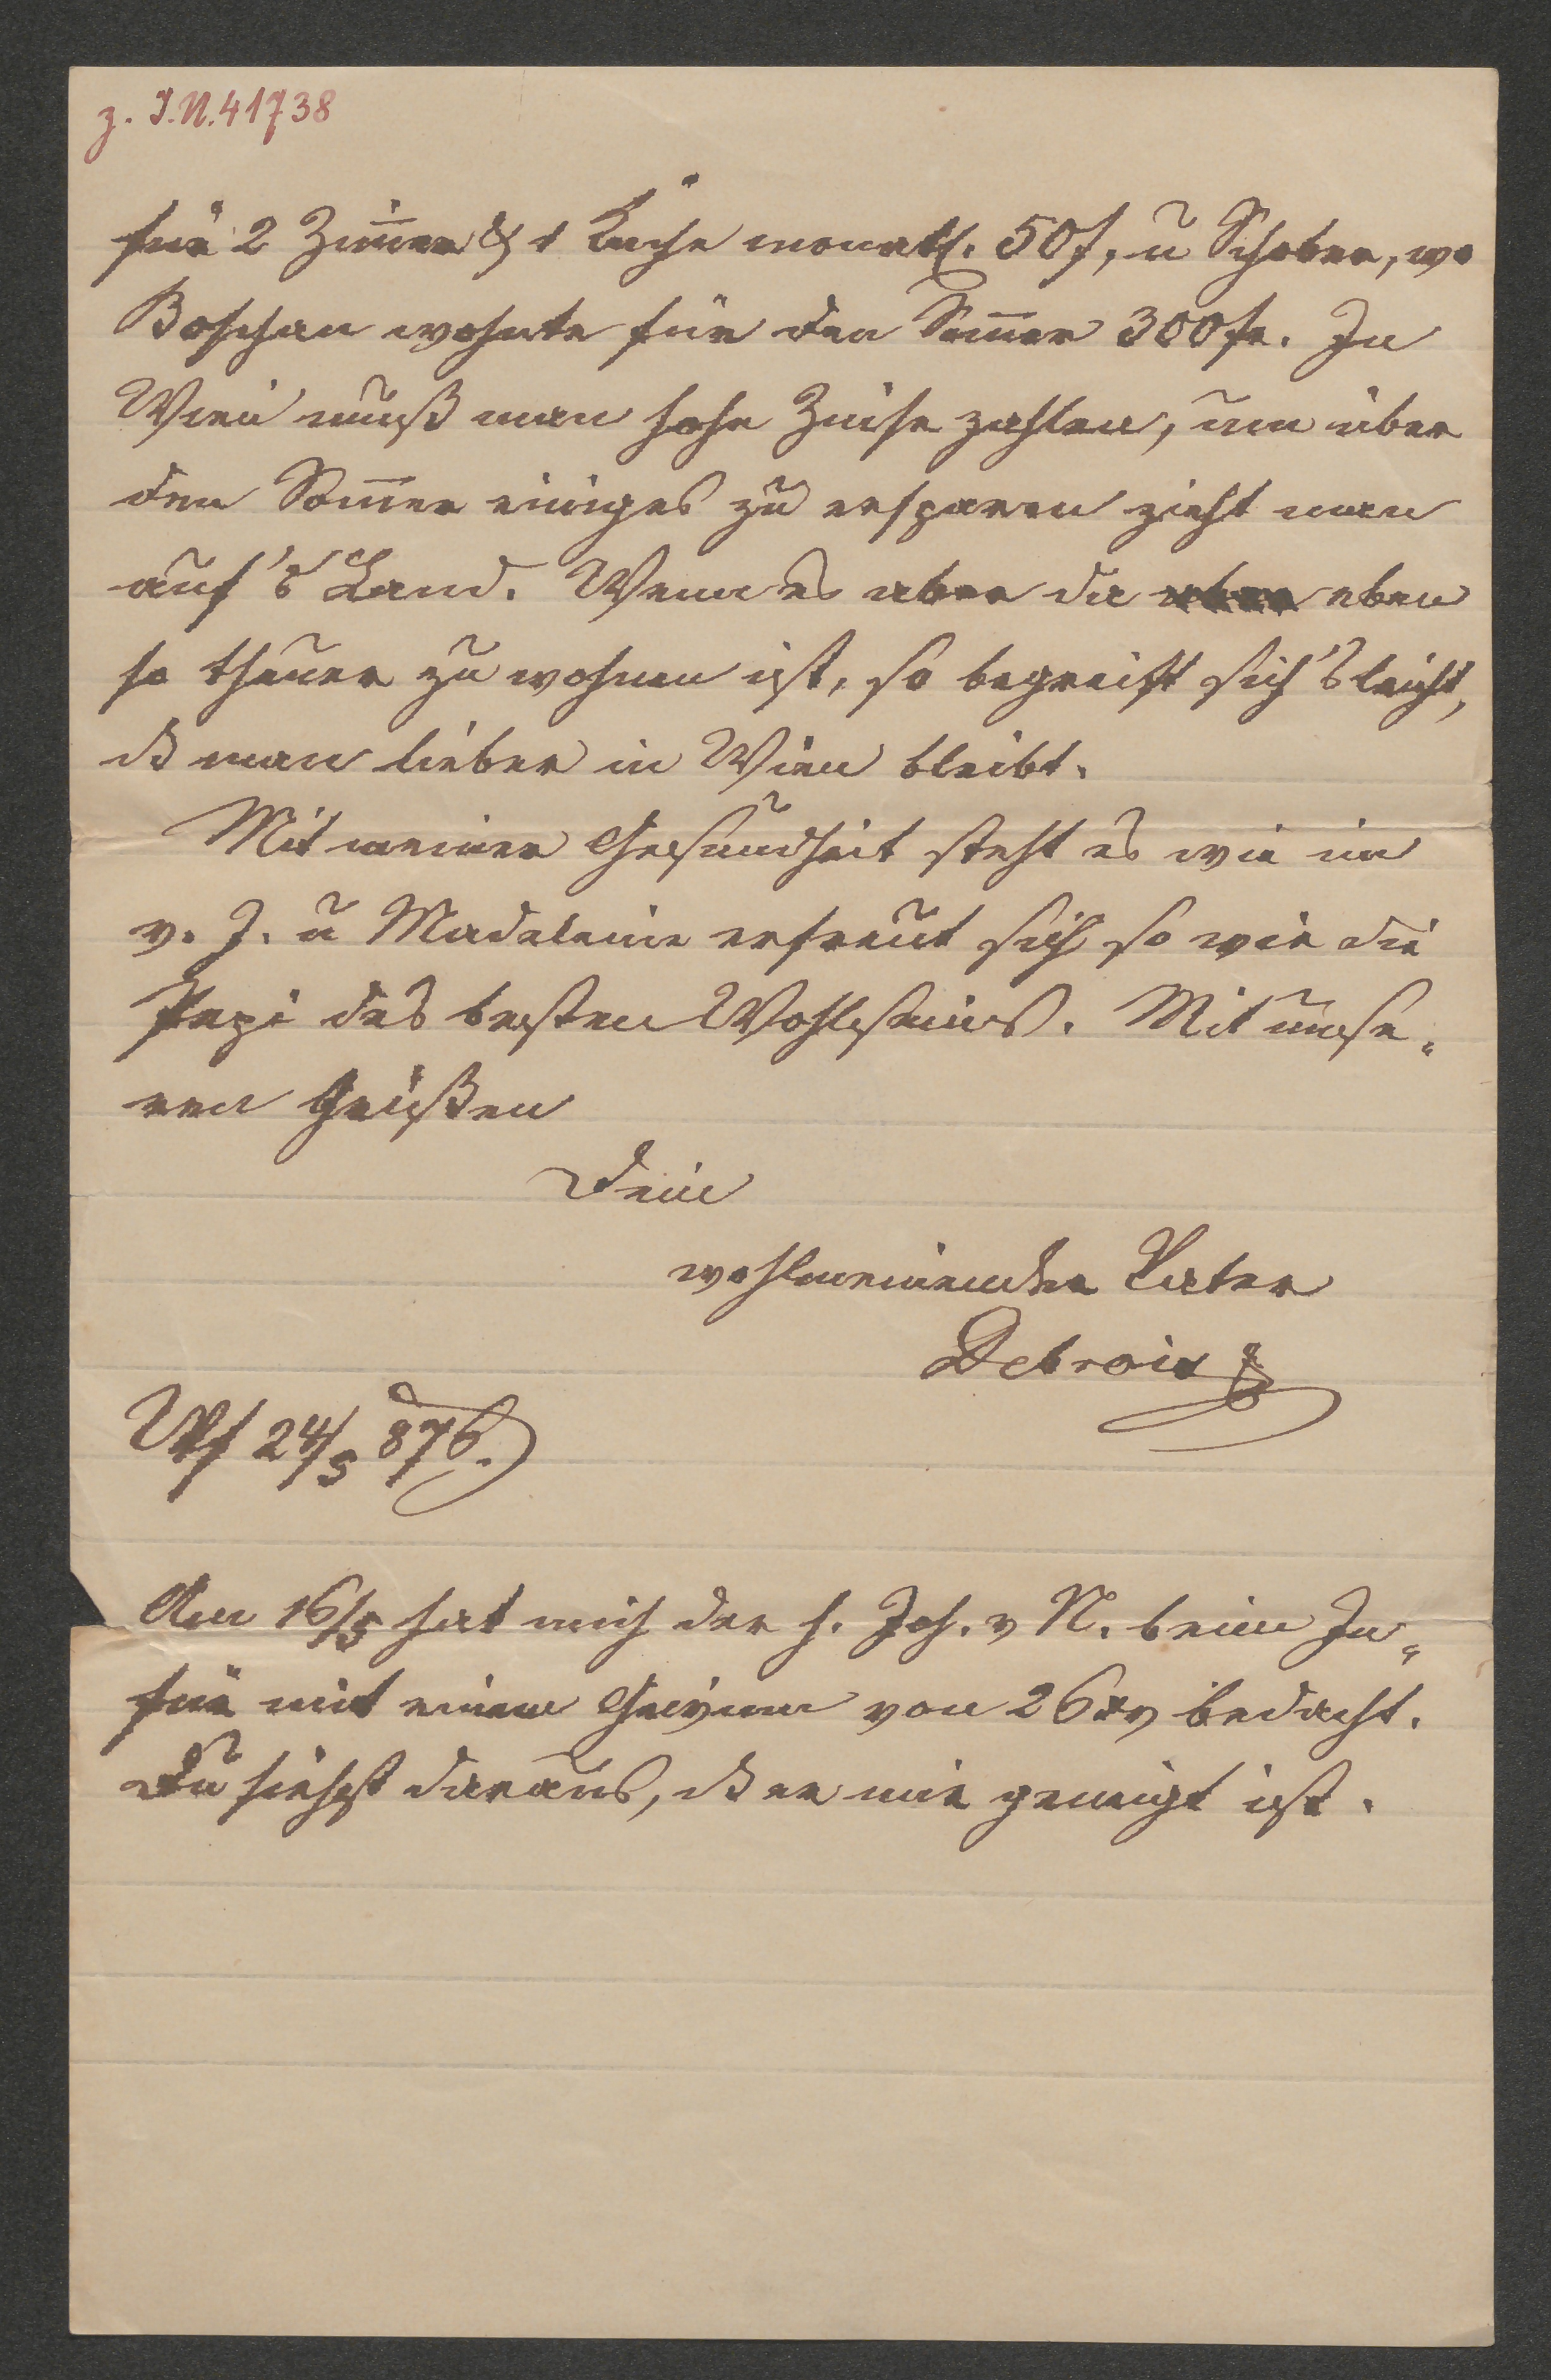 z. I.N. 41738
für 2 Zim̅er & 1 Küche monatl. 50 f, u Schober, wo
Boschan wohnte für den Som̅er 300 fr. In
Wien muß man hohe Zinse zahlen, um über
den Som̅er einiges zu ersparen zieht man
auf's Land. Wenn es aber da eben
so theuer zu wohnen ist, so begreift sich's leicht,
ds man lieber in Wien bleibt.
Mit meiner Gesundheit steht es wie im
v. J. u Madeleine erfreut sich so wie die
Pepi des besten Wohlseins. Mit unse„
ren Grüßen
Dein
wohlmeinender Vater
Debrois
24/5 876.
Am 16/5 hat mich der h. Joh. v N. beim
mit einem Gewinn von 26 bedacht.
Du siehst daraus, ds er mir geneigt ist.